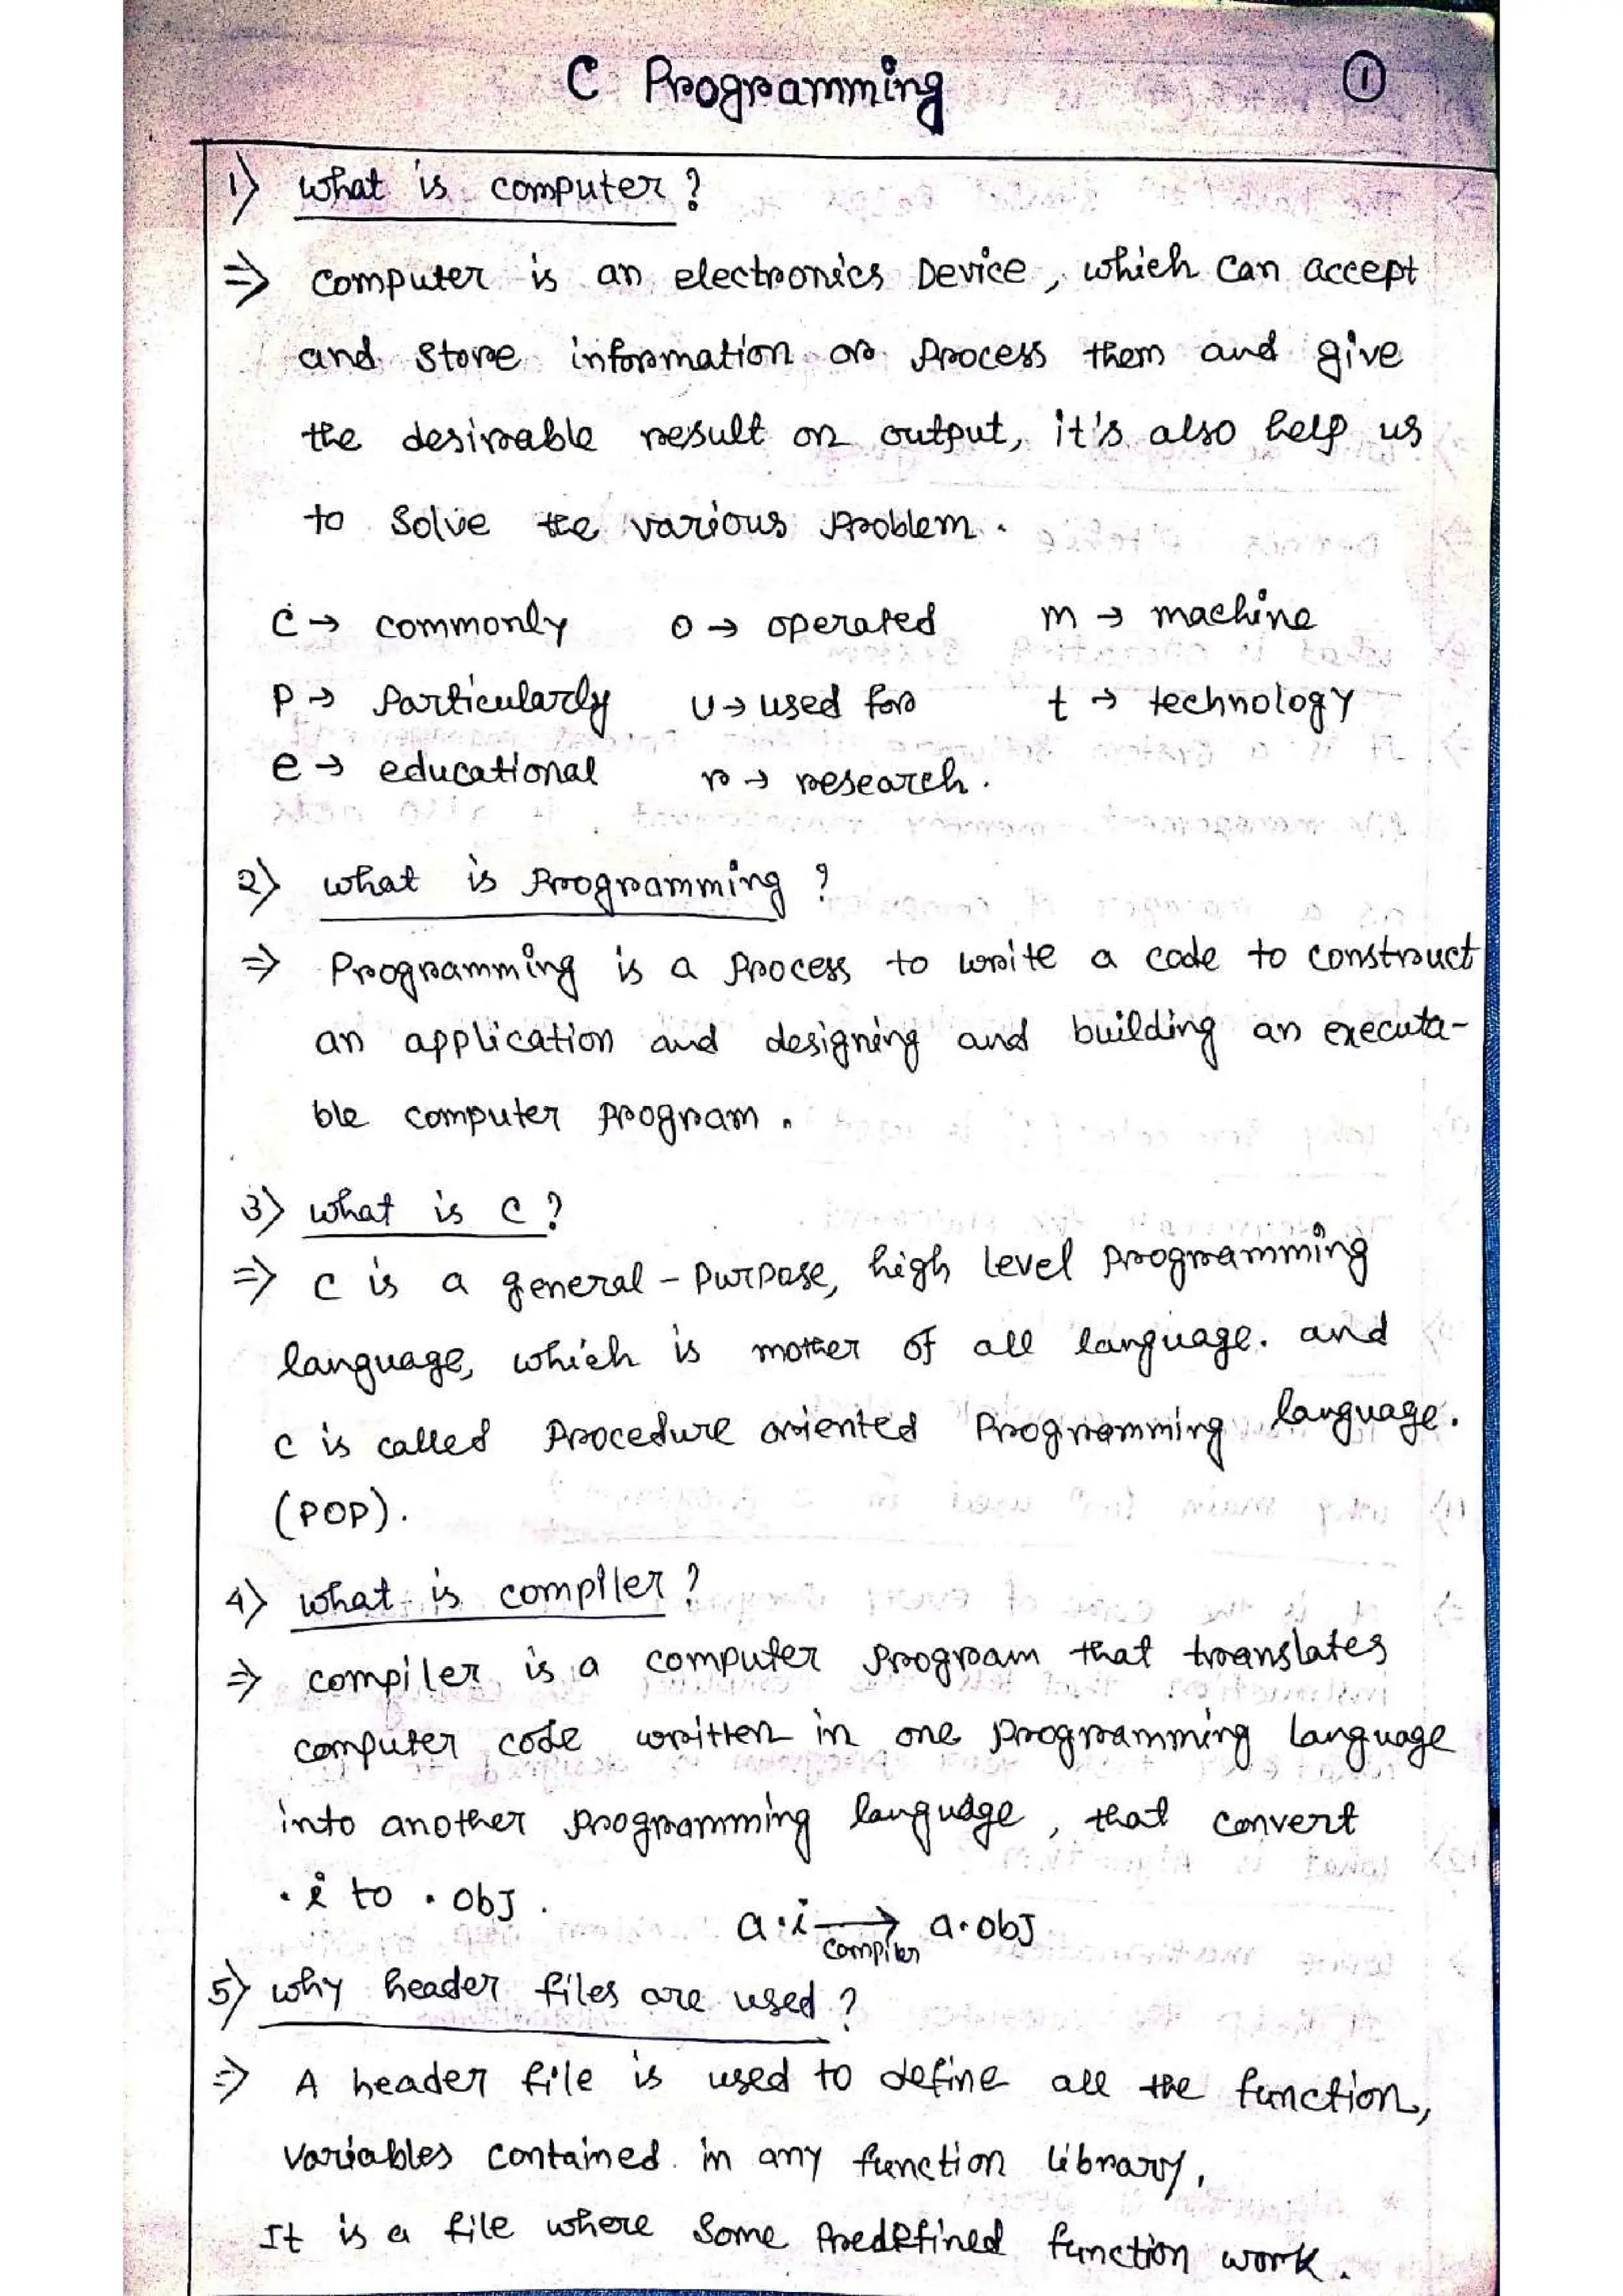 C Programming
1
1) what is computer?
⇒ computer is an electronics Device, which can accept
and store information or process them and give
the desirable result or output, it's also help us
to solve the various problem.
C → commonly o → operated m → machine
P → Particularly U → used for t → technology
e → educational r → research.
2) what is programming ?
⇒ Programming is a process to write a code to construct
an application and designing and building an executa-
ble computer program.
3) what is c ?
⇒ C is a general - purpose, high level programming
language, which is mother of all language. and
C is called Procedure oriented Programming language.
(POP).
4) what is compiler ?
⇒ compiler is a computer program that translates
computer code written in one programming language
into another programming language, that convert
.i to .obj.
a.i → a.obj
compiler
5) why header files are used ?
⇒ A header file is used to define all the function,
variables contained in any function library,
It is a file where some predefined function work.